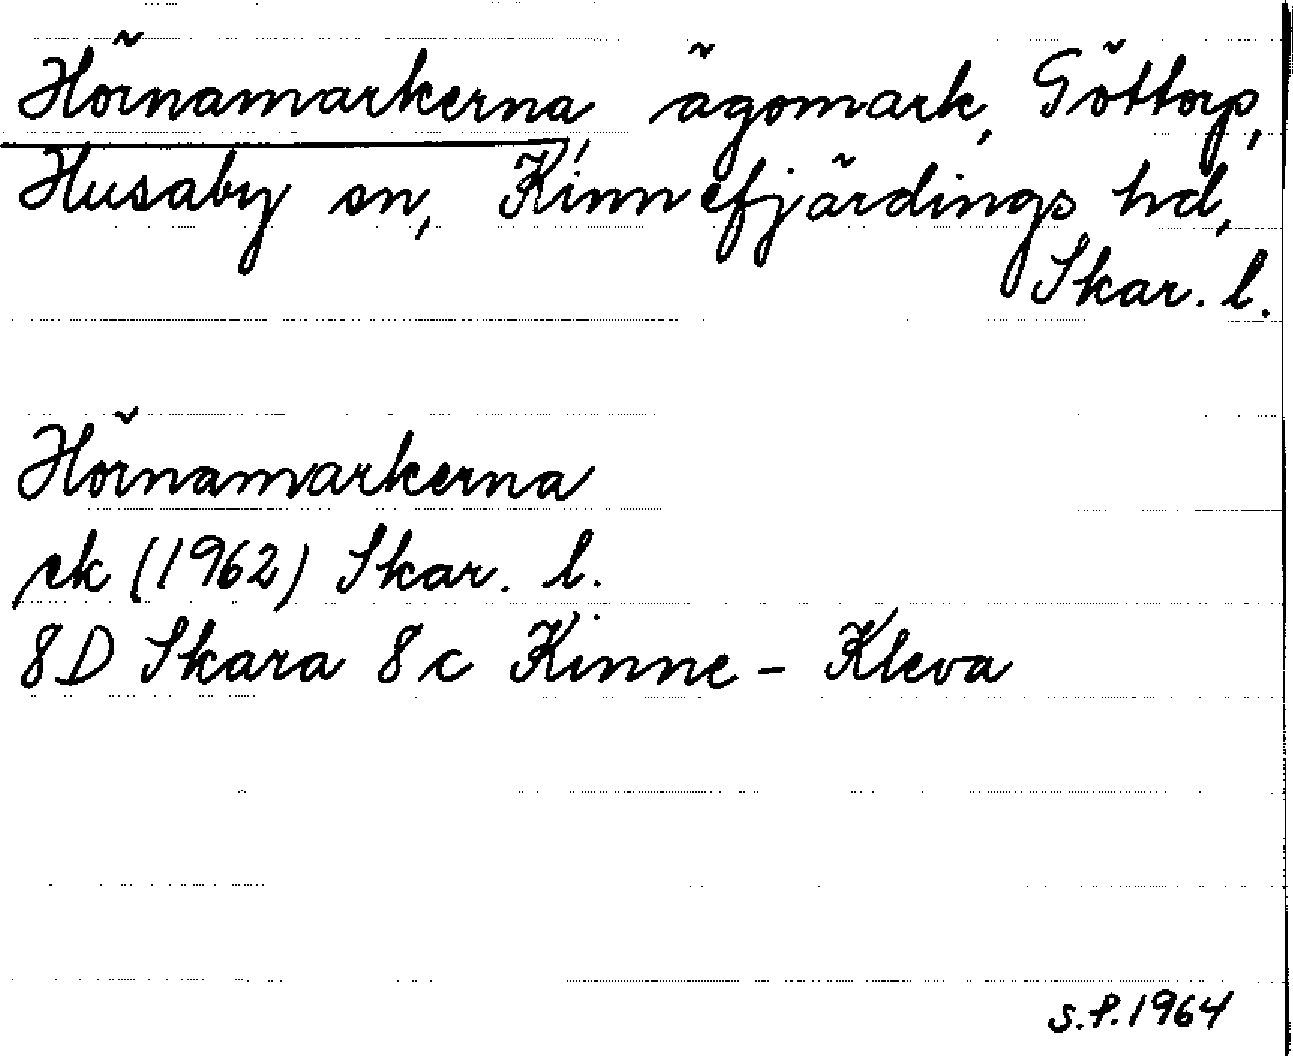 Hörnamarkerna, ägomark, Göttorp,
Husaby sn, Kinnefjärdings hd,
Skar. l.
Hörnamarkerna
ek (1962) Skar. l.
8D Skara 8c Kinne - Kleva
S.P. 1964